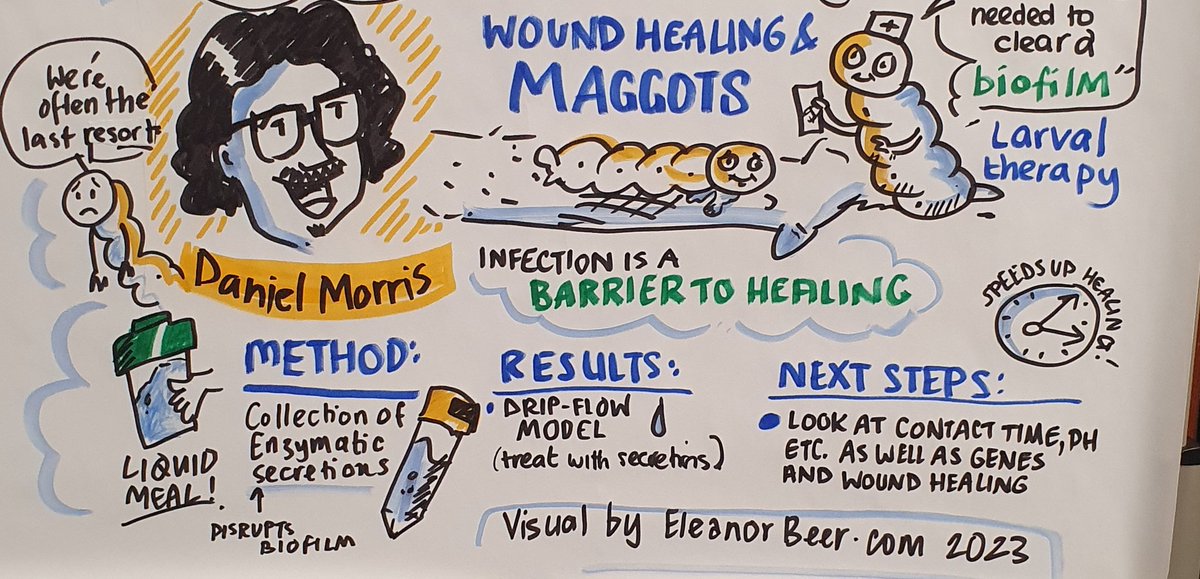 We're
often the
last resort
Daniel Morris
WOUND HEALING &
MAGGOTS
needed to
clear a
biofilm"
Larval
therapy
INFECTION IS A
BARRIER TO HEALING
SPEEDS UP HEALING!
LIQUID
MEAL!
METHOD:
Collection of
Enzymatic
secretions
DISRUPTS
BIOFILM
RESULTS:
• DRIP-FLOW
MODEL
(treat with secretions)
NEXT STEPS:
• LOOK AT CONTACT TIME, PH
ETC. AS WELL AS GENES
AND WOUND HEALING
Visual by EleanorBeer.com 2023